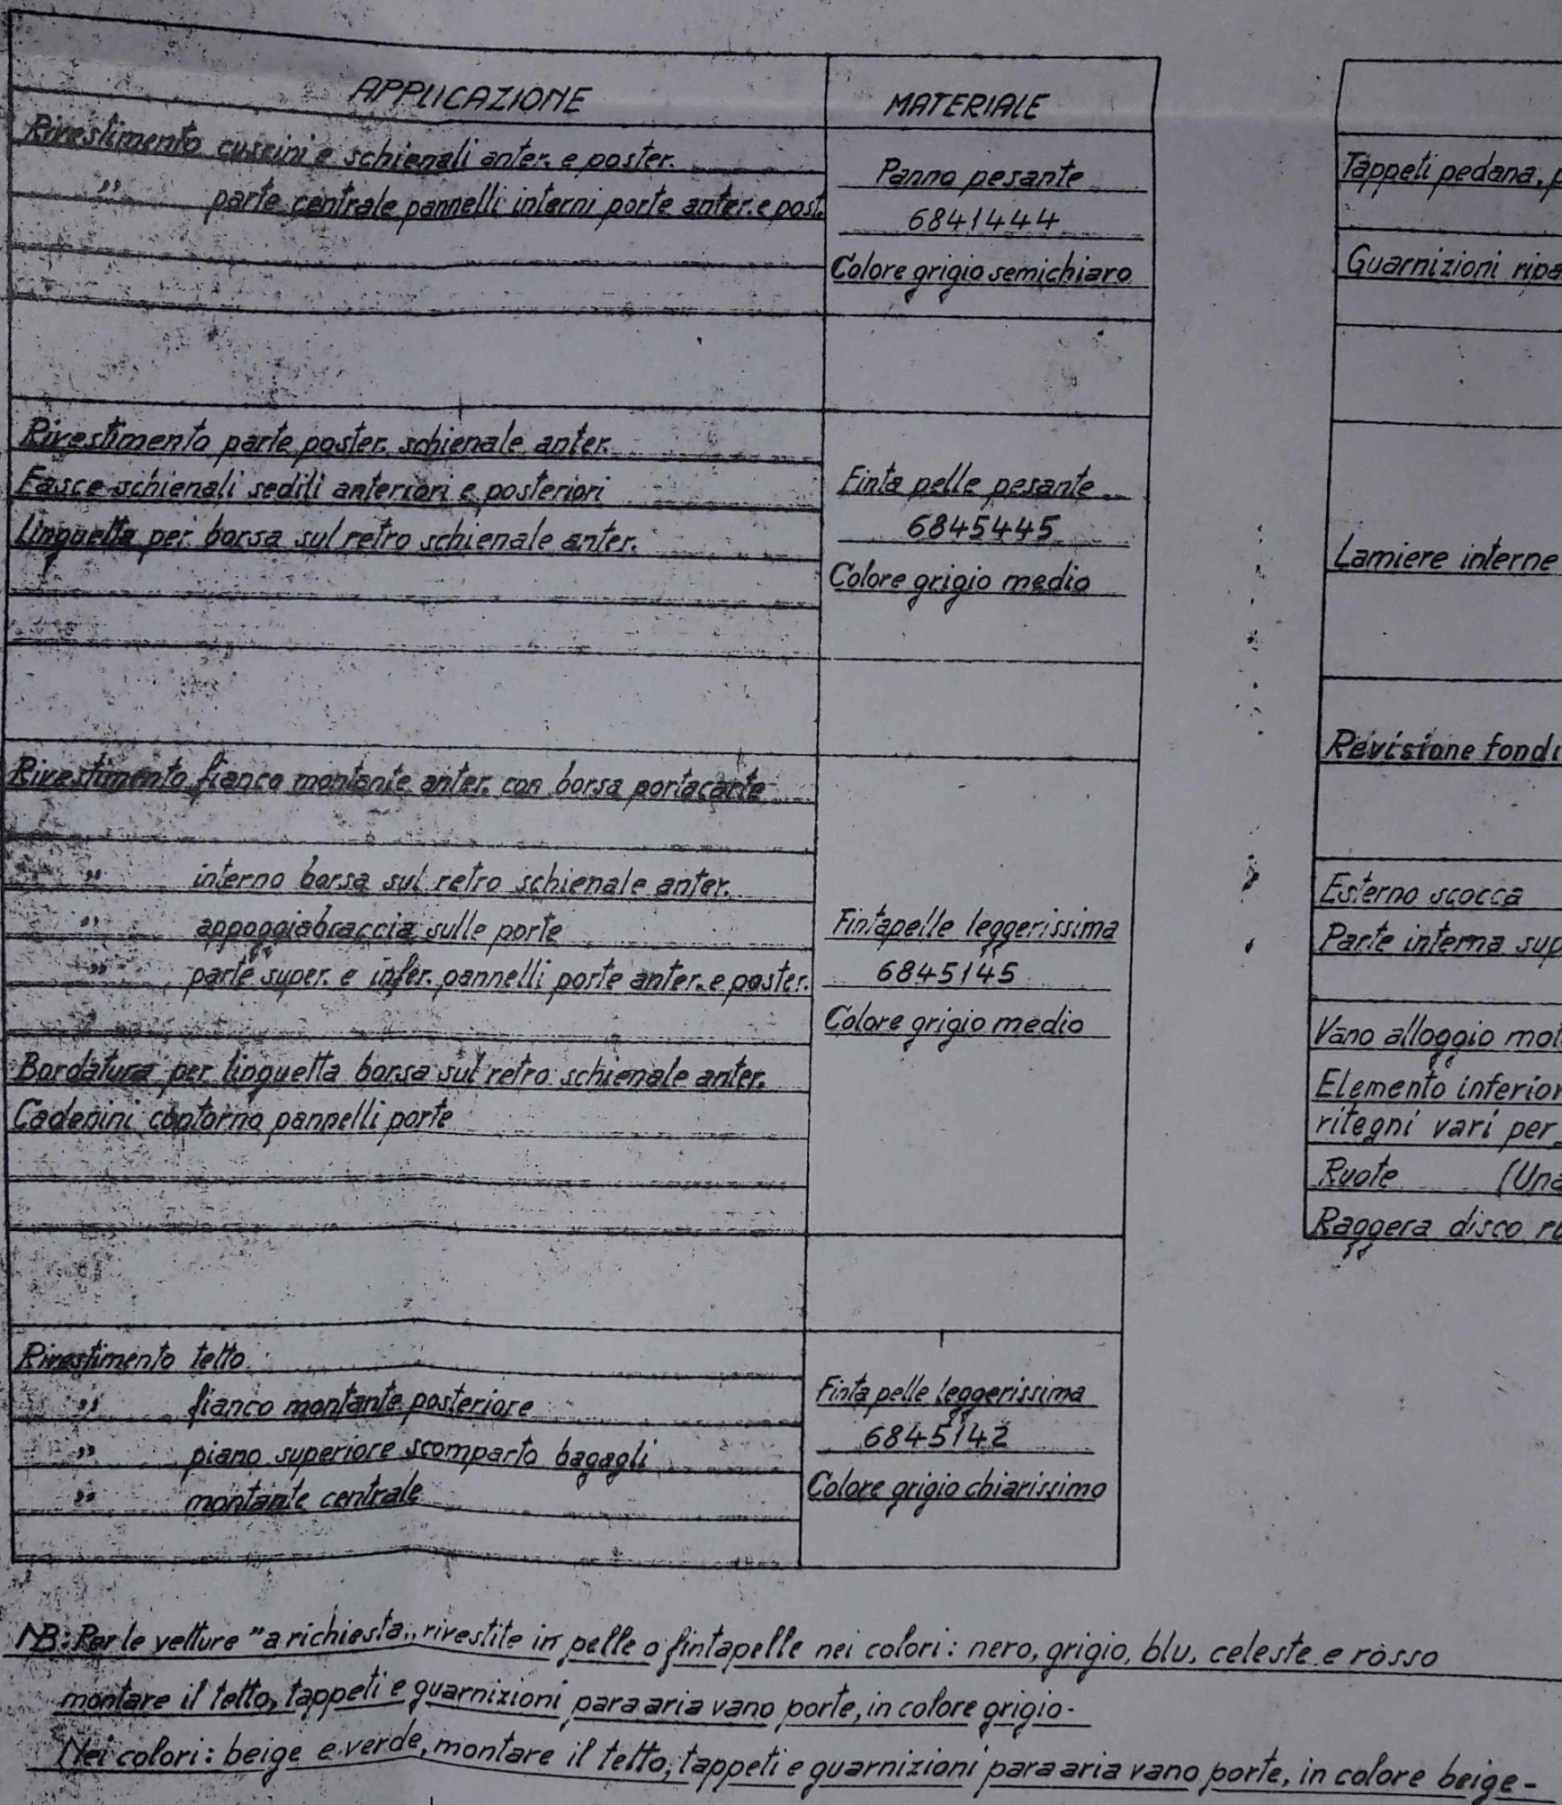 APPLICAZIONE
MATERIALE
Rivestimento cuscini e schienali anter. e poster.
" parte centrale pannelli interni porte anter. e post.
Panno pesante
6841444
Colore grigio semichiaro
Rivestimento parte poster. schienale anter.
Fasce schienali sedili anteriori e posteriori
Linguetta per borsa sul retro schienale anter.
Finta pelle pesante
6845445
Colore grigio medio
Rivestimento fianco montante anter. con borsa portacarte
" interno borsa sul retro schienale anter.
" appoggiabraccia sulle porte
" parte super. e infer. pannelli porte anter. e poster.
Bordatura per linguetta borsa sul retro schienale anter.
Cadenini contorno pannelli porte
Fintapelle leggerissima
6845145
Colore grigio medio
Rivestimento tetto
" fianco montante posteriore
" piano superiore scomparto bagagli
" montante centrale
Finta pelle leggerissima
6845142
Colore grigio chiarissimo
NB: Per le vetture "a richiesta" rivestite in pelle o fintapelle nei colori: nero, grigio, blu, celeste e rosso
montare il tetto, tappeti e guarnizioni para aria vano porte, in colore grigio-
Nei colori: beige e verde, montare il tetto, tappeti e guarnizioni para aria vano porte, in colore beige-
Tappeti pedana, p
Guarnizioni ripa
Lamiere interne
Revisione fondi
Esterno scocca
Parte interna sup
Vano alloggio mot
Elemento inferior
ritegni vari per
Ruote (Una
Raggera disco ru